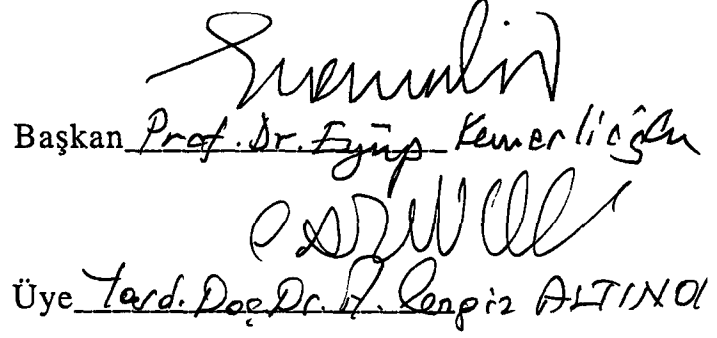 Başkan Prof. Dr. Eyüp Kemerlioğlu
Üye Yard. Doç Dr. A. Cengiz ALTINOl